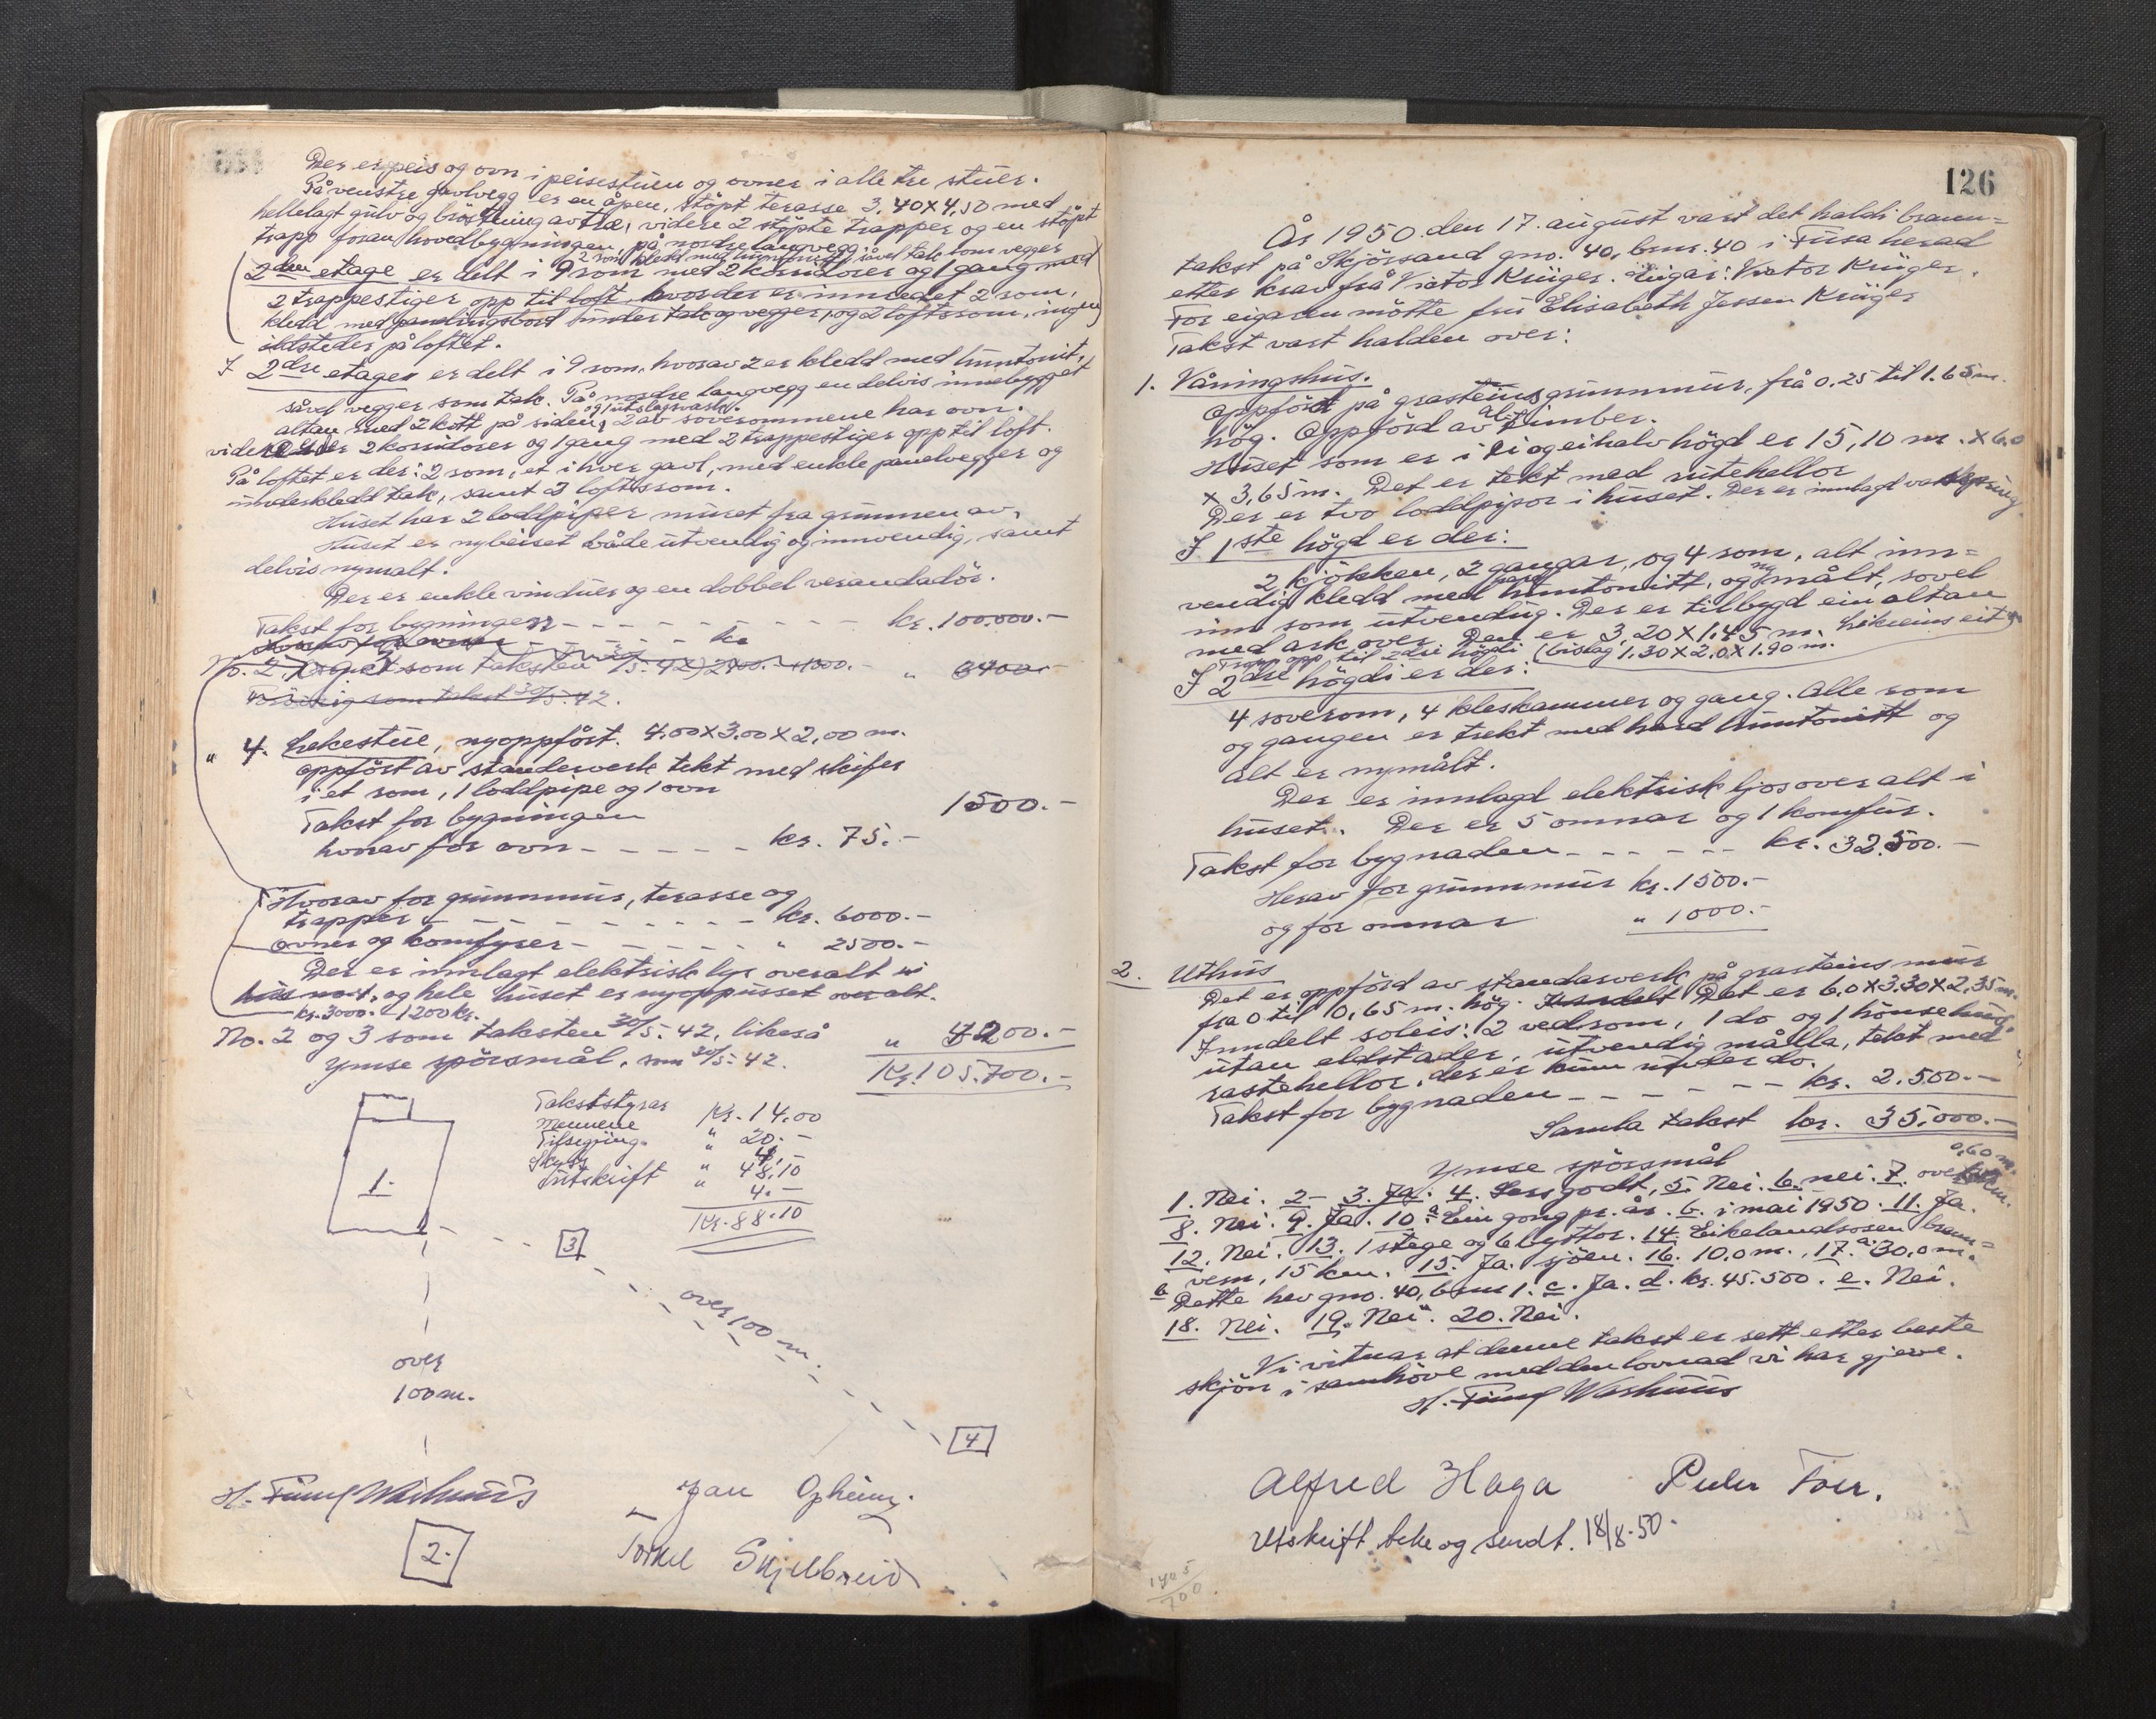 Der er peis og ovn i peisestuen og ovner i alle tre stuer.
På venstre gavlvegg er en åpen, støpt terasse 3,40 x 4,50 med
hellelagt gulv og bröstning av tre, videre 2 støpte trapper og en støpt
trapp foran hovedbygningen, på nordre langvegg.
2 rom kledd med huntonit, såvel tak som vegger
2den etage er delt i 9 rom med 2 korridorer og 1 gang med
2 trappestiger opp til loft, hvor der er innredet 2 rom,
kledd med panelingsbord under tak og vegger, og 2 loftsrom, ingen
ildsteder på loftet.
I 2dre etage er delt i 9 rom, hvorav 2 er kledd med huntonit,
såvel vegger som tak. På nordre langvegg en delvis innebygget
altan med 2 kott på siden, 2 av soverommene har ovn.
og 1 utslagsvask.
videre er der 2 korridorer og 1 gang med 2 trappestiger opp til loft.
På loftet er der: 2 rom, et i hver gavl, med enkle panelvegger og
underkledd tak, samt 2 loftsrom.
Huset har 2 loddpiper muret fra grunnen av,
Huset er nybeiset både utvendig og innvendig, samt
delvis nymalt.
Der er enkle vinduer og en dobbel verandadör.
Takst for bygningen - - - - - - kr. 100.000.-
No. 2, og 3 som taksten
" 4. Lekestue, nyoppført. 4.00 x 3.00 x 2,00 m.
oppfört av standerverk tekt med skifer
i et rom, 1 loddpipe og 1 ovn
Takst for bygningen 1500.-
hvorav for ovn - - - - - kr. 75.-
Hvorav for grunnmur, terasse og
trapper - - - - - - - - kr. 6000.-
ovner og komfyrer - - - - - " 2500.-
Der er innlagt elektrisk lys overalt i
og hele huset er nyoppusset over alt.
kr. 3000.- 1200 kr.
No. 2 og 3 som taksten 30/5-42, likeså " 4200.-
Ymse spörsmål, som 30/5-42. Kr. 105.700.-
Takststyrar Kr. 14.00
Mennene " 20.-
Tilsegning. "
Skyss " 48,10
Utskrift 4.-
Kr. 88.10
1.
3
over 100 m.
over
100 m.
4
2.
Jan Opheim.
Torkel Skjelbreid
126
År 1950 den 17. august vart det haldi brann=
takst på Skjörsand gno. 40, bnr. 40 i Fusa herad
etter krav frå Victor Krüger. Eigar: Victor Krüger.
For eigaren mötte fru Elisabeth Jessen Krüger
Takst vart halden over:
1. Våningshus.
Oppförd på grasteinsgrunnmur, frå 0.25 til 1.65 m.
hög. Oppförd av timber.
Huset som er i ei og ei halv högd er 15,10 m. x 6,0
x 3,65 m. Det er tekt med rutehellor
Der er tvo loddpipor i huset. Der er innlagd vassleysing
I 1ste högd er der:
2 kjökken, 2 gangar, og 4 rom, alt inn=
vendig kledd med huntonitt, og nymålt, sovel
inn som utvendig. Der er tilbygd ein altan
med ark over. Den er 3,20 x 1.45 m. Likeeins eit
Trapp opp til 2dre högdi (bislag 1.30 x 2.0 x 1.90 m.
I 2dre högdi er der:
4 soverom, 4 kleskammer og gang. Alle rom
og gangen er trekt med hard huntonitt og
alt er nymålt.
Der er innlagd elektrisk ljos over alt i
huset. Der er 5 omnar og 1 komfur.
Takst for bygnaden - - - - - - kr. 32.500.-
Herav for grunnmur kr. 1500.-
og for omnar " 1000.-
2. Uthus
Det er oppförd av standarverk på grasteins mur
fra 0 til 0,65 m. hög. Det er 6,0 x 3.30 x 2,35 m.
Inndelt soleis: 2 vedrom, 1 do og 1 hönsehus,
utan eldstader, utvendig målla, tekt med
rastehellor, der er kum under do.
Takst for bygnaden - - - - - kr. 2.500.-
Samla takst kr. 35.000.-
Ymse spörsmål
0,60 m.
1. Nei. 2 - 3. Ja. 4. Sers godt, 5. Nei. 6. nei. 7. over
8. Nei. 9. Ja. 10 a Ein gong pr. år. b. i mai 1950. 11. Ja.
12. Nei. 13. 1 stege og 6 byttor. 14. Eikelandsosen brann=
vern, 15 km. 15. Ja. sjöen. 16. 10,0 m. 17. a. 30,0 m.
b Dette hev gno. 40, bnr 1. c. Ja. d. kr. 45.500. e. Nei.
18. Nei. 19. Nei. 20. Nei.
Vi vitnar at denne takst er sett etter beste
skjön i samhöve med den lovnad vi har gjeve.
Alfred Haga
Utskrift teke og sendt. 18/8-50.